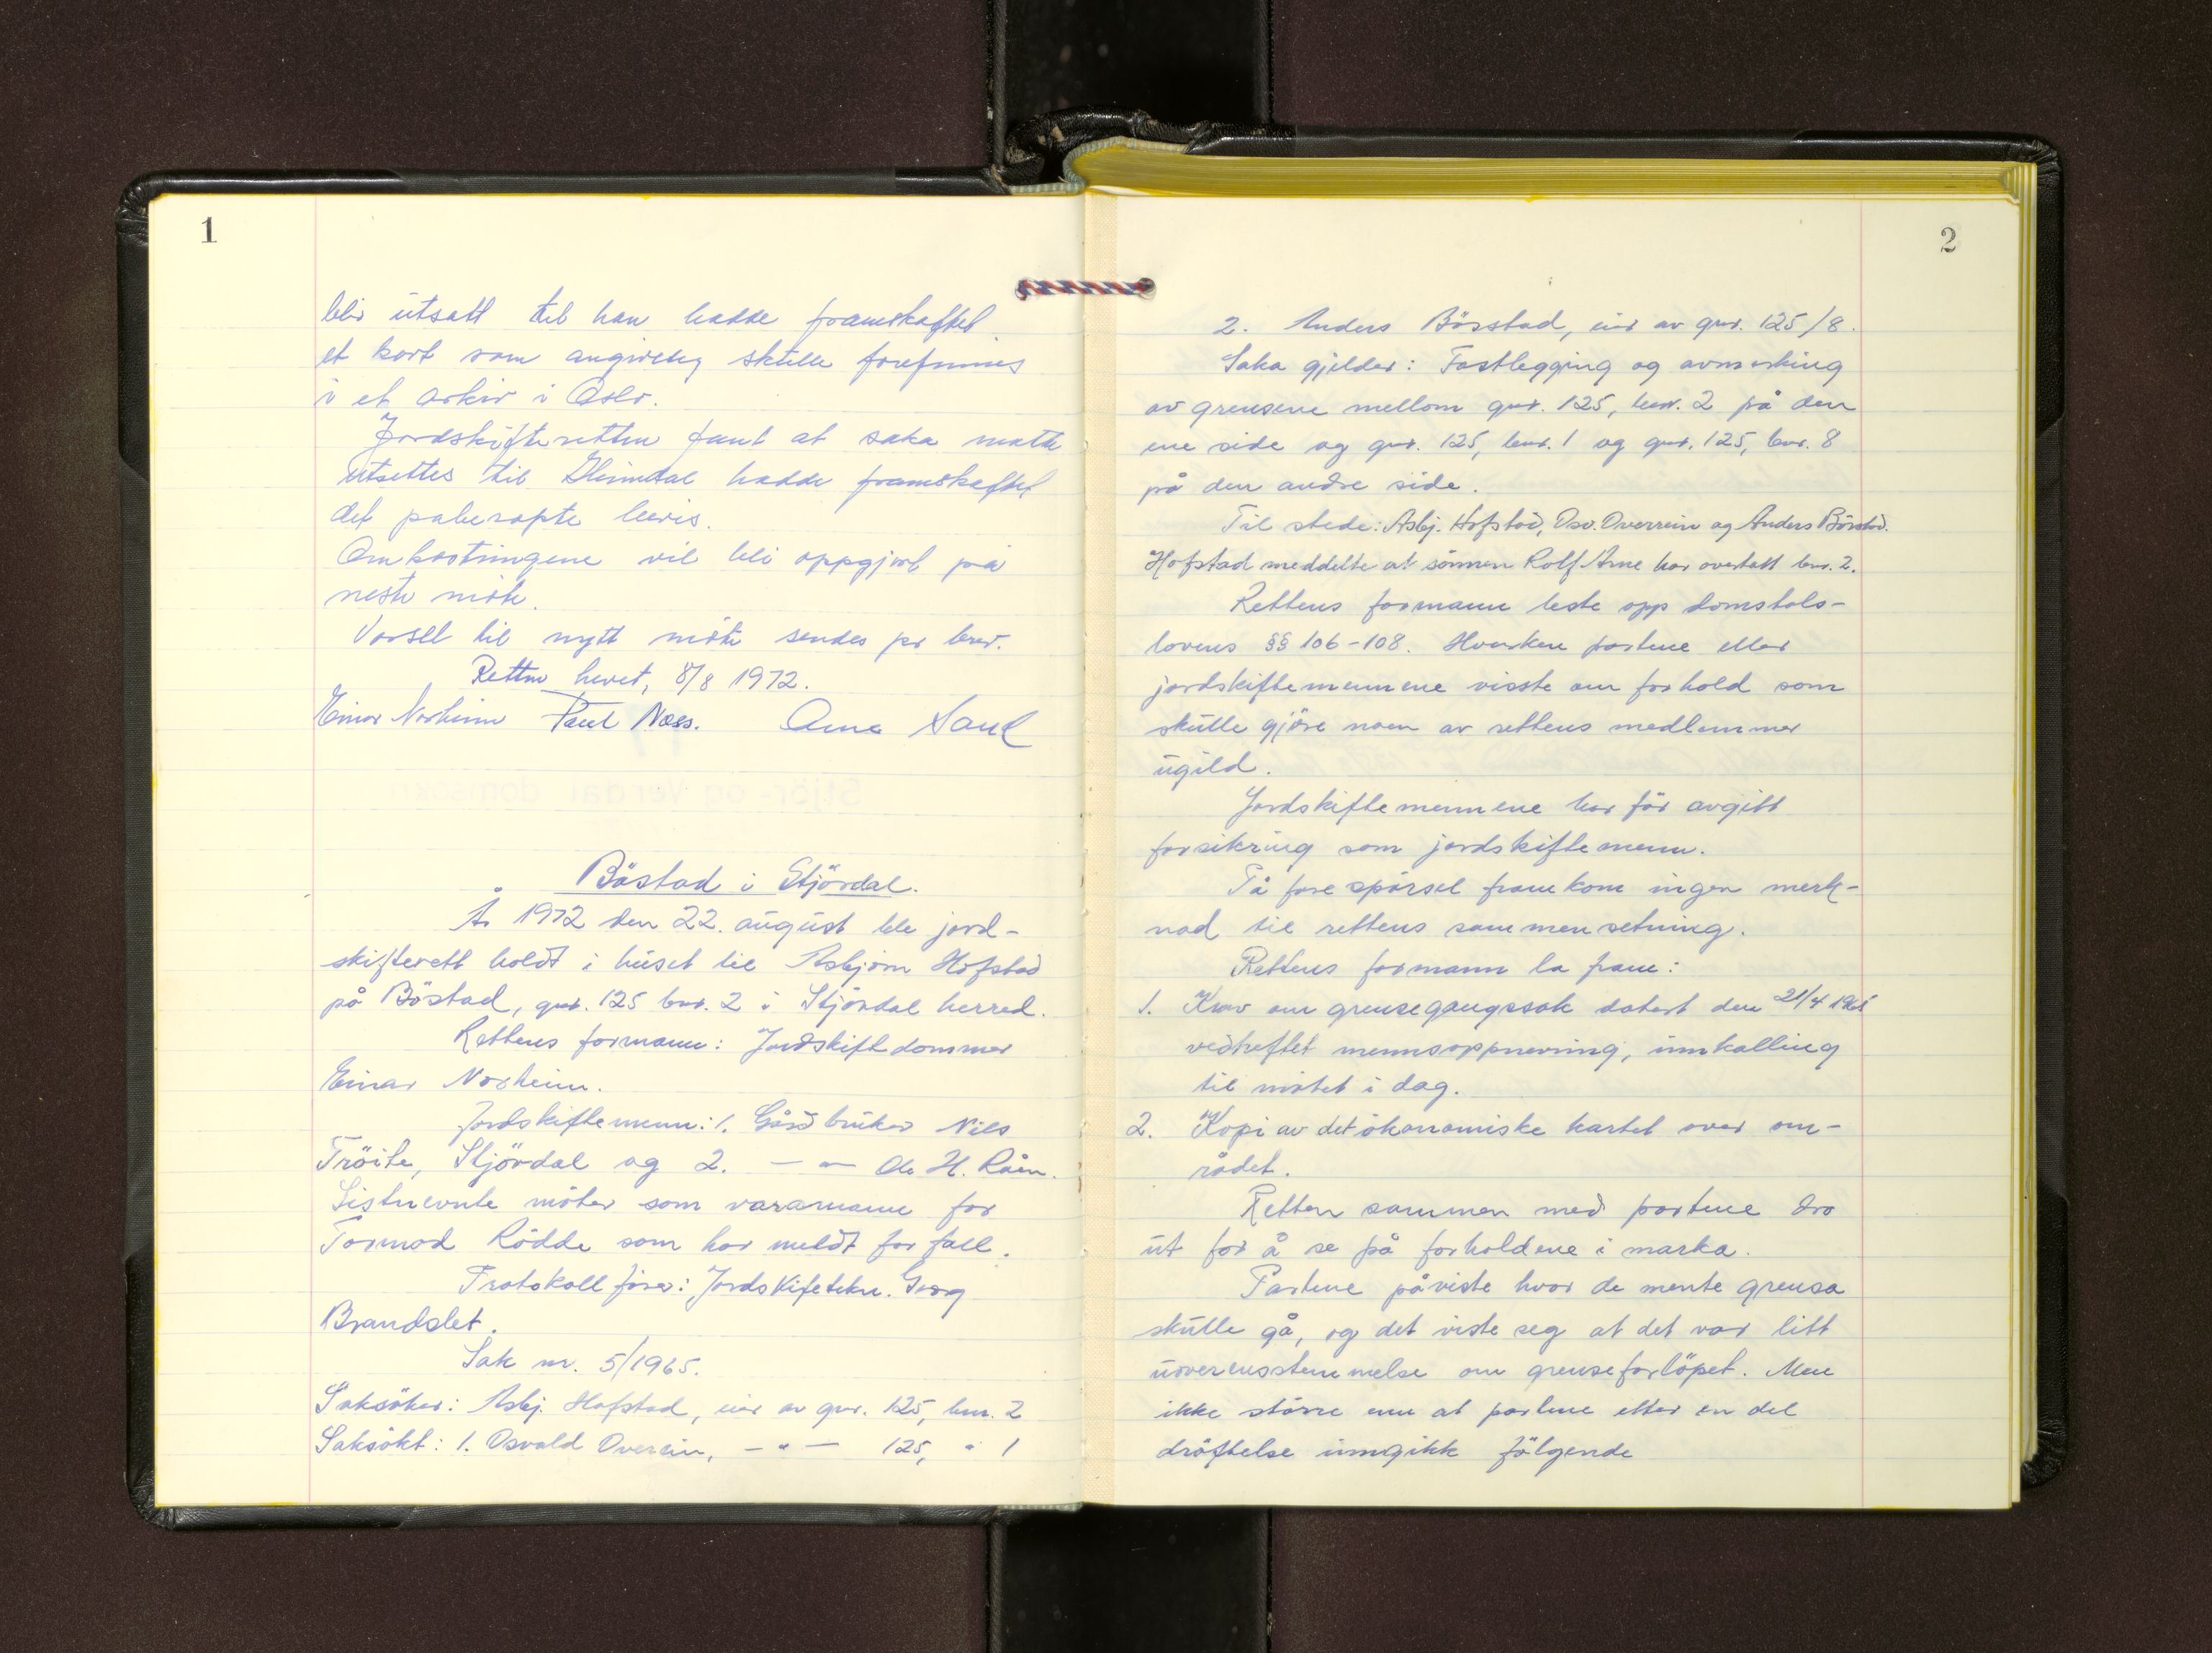 1
blir utsatt til han hadde framskaffet
et kart som angivelig skulle forefinnes
i et arkiv i Oslo.
Jordskifteretten fant at saka måtte
utsettes til Glimdal hadde framskaffet
det påberopte bevis.
Omkostningene vil bli oppgjort på
neste møte.
Varsel til nytt møte sendes pr brev.
Retten hevet, 8/8 1972.
Einar Norheim Paul Næss. Arne Sand
Böstad i Stjördal.
År 1972 den 22. august ble jord-
skifterett holdt i huset til Asbjørn Hofstad
på Böstad, gnr. 125 bnr. 2 i Stjördal herred.
Rettens formann: Jordskiftedommer
Einar Norheim.
Jordskiftemenn: 1. Gårdbruker Nils
Tröite, Stjördal og 2. — " — Ole H. Råen.
Sistnevnte möter som varamann for
Tormod Rödde som har meldt forfall.
Protokollförer: Jordskiftetekn. Georg
Brandslet.
Sak nr. 5/1965.
Saksöker: Asbj. Hofstad, eier av gnr. 125, bnr. 2
Saksökt: 1. Osvald Overrein, — " — 125, " 1
2
2. Anders Bösstad, eier av gnr. 125/8.
Saka gjelder: Fastlegging og avmerking
av grensene mellom gnr. 125, bnr. 2 på den
ene side og gnr. 125, bnr. 1 og gnr. 125, bnr. 8
på den andre side.
Til stede: Asbj. Hofstad, Osv. Overrein og Anders Börstad.
Hofstad meddelte at sönnen Rolf Arne har overtatt bnr. 2.
Rettens formann leste opp domstols-
lovens §§ 106-108. Hverken partene eller
jordskiftemennene visste om forhold som
skulle gjöre noen av rettens medlemmer
ugild.
Jordskiftemennene har för avgitt
forsikring som jordskiftemenn.
På forespörsel framkom ingen merk-
nad til rettens sammensetning.
Rettens formann la fram:
1. Krav om grensegangssak datert den 21/4 1965
vedheftet mennsoppnevning, innkalling
til mötet i dag.
2. Kopi av det ökonomiske kartet over om-
rådet.
Retten sammen med partene dro
ut for å se på forholdene i marka.
Partene påviste hvor de mente grensa
skulle gå, og det viste seg at det var litt
uoverensstemmelse om grenseforlöpet. Men
ikke större enn at partene etter en del
dröftelse inngikk fölgende